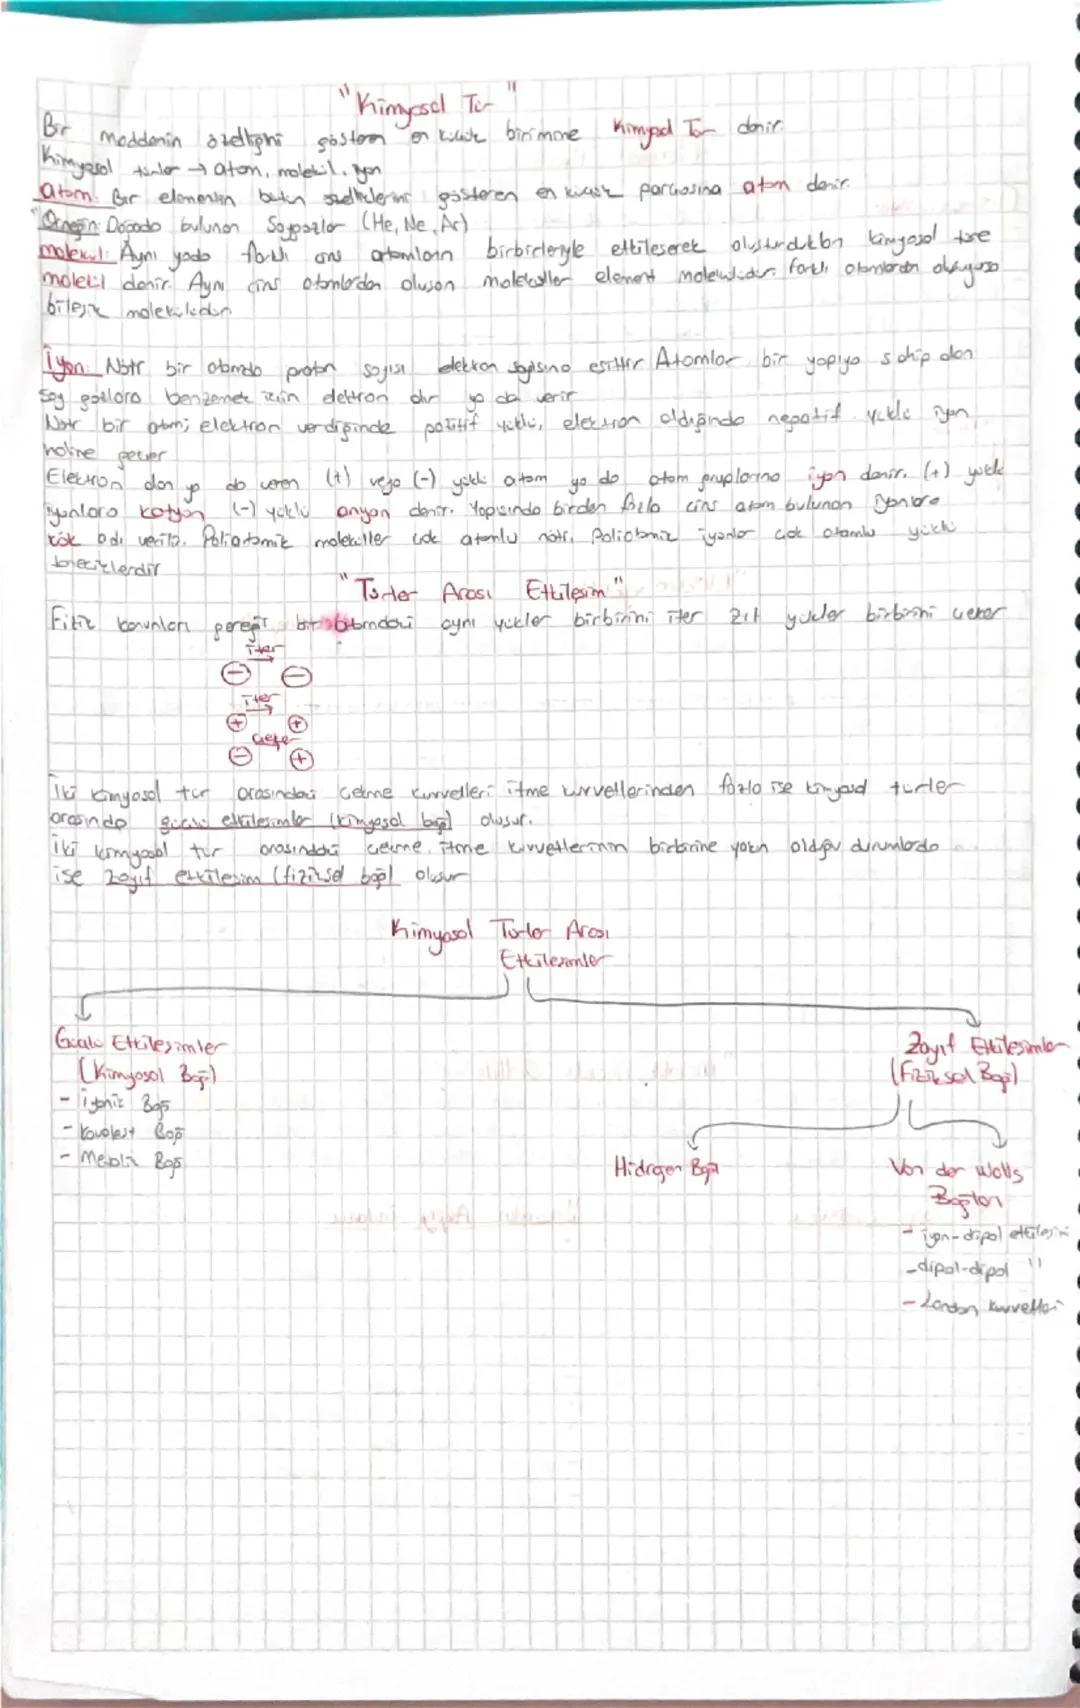 "Kimyasal Tür"
Bir maddenin özelliğini gösteren en küçük birimine Kimyasal Tür denir.
Kimyasal türler → atom, molekül, iyon
atom: Bir elementin bütün özelliklerini gösteren en küçük parçasına atom denir.
Örneğin: Doğada bulunan Soygazlar (He, Ne, Ar)
molekül: Aynı yada farklı cins atomların birbirleriyle etkileşerek oluşturdukları kimyasal türe
molekül denir. Aynı cins atomlardan oluşan moleküller element molekülüdür. farklı atomlardan oluşuyorsa
bileşik molekülüdür.
İyon: Nötr bir atomda proton sayısı elektron sayısına eşittir Atomlar bir yapıya sahip olan
Soy gazlara benzemek için elektron alır ya da verir
Nötr bir atom; elektron verdiğinde pozitif yüklü, elektron aldığında negatif yüklü iyon
haline geçer
Elektron alan ya da veren (+) veya (-) yüklü atom ya da atom gruplarına iyon denir. (+) yüklü
iyonlara katyon (-) yüklü anyon denir. Yapısında birden fazla cins atom bulunan iyonlara
kök adı verilir. Poliatomik moleküller çok atomlu nötr, Poliatomik iyonlar çok atomlu yüklü
taneciklerdir
"Türler Arası Etkileşim"
Fizik kanunları gereği bir atomdaki aynı yükler birbirini iter zıt yükler birbirini çeker
iter
- -
iter
+ +
Çeker
- +
İki kimyasal tür arasındaki çekme kuvvetleri itme kuvvetlerinden fazla ise kimyasal türler
arasında güçlü etkileşimler (kimyasal bağ) oluşur.
İki kimyasal tür arasındaki çekme, itme kuvvetlerinin birbirine yakın olduğu durumlarda
ise zayıf etkileşim (fiziksel bağ) oluşur
Kimyasal Türler Arası
Etkileşimler
Güçlü Etkileşimler
(Kimyasal Bağ)
- İyonik Bağ
- Kovalent Bağ
- Metalik Bağ
Zayıf Etkileşimler
(Fiziksel Bağ)
Hidrojen Bağı
Van der Walls
Bağları
- iyon-dipol etkileşimi
- dipol-dipol "
- London kuvvetleri